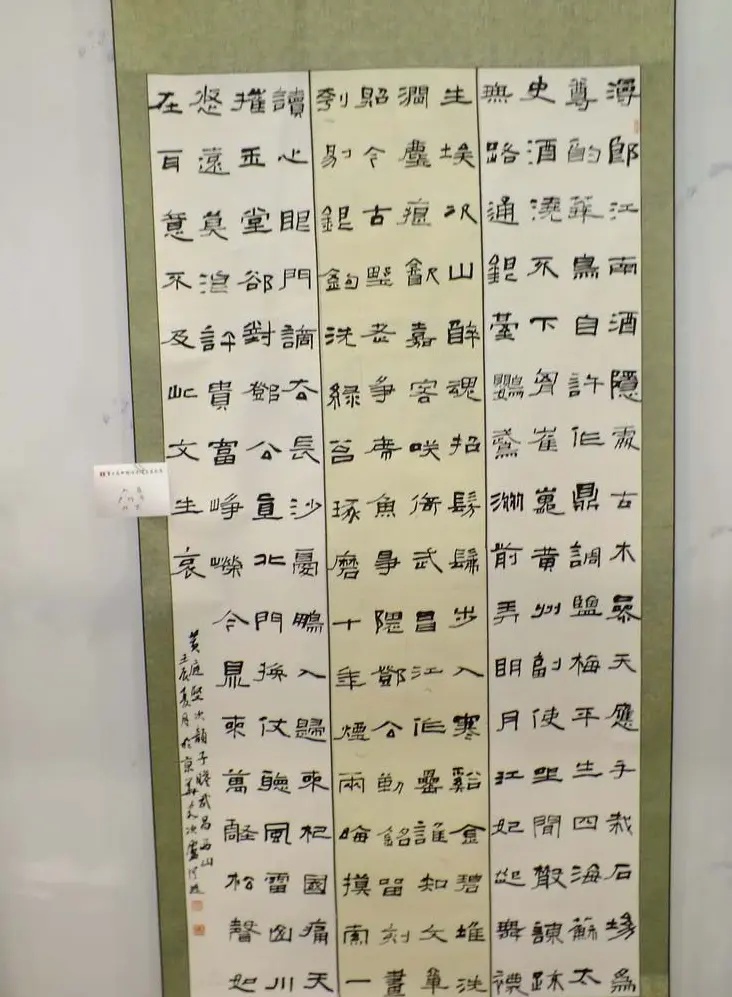 漫郎江南酒隱處古木參天應手栽石坳為
尊酌華鳥自許作鼎調鹽梅平生四海蘇太
史酒澆不下胷崔嵬黃州副使坐閒散諫疏
無路通銀臺鸚鵡洲前弄明月江妃起舞襪
生埃次山醉魂招髣髴步入寒谿金碧堆洗
湔塵痕飲嘉客咲倚武昌江作罍誰知文章
照今古野老爭席魚爭隈鄧公勒銘留刻畫
刳剔銀鉤洗綠苔琢磨十年煙雨晦摸索一
讀心眼開謫去長沙憂鵩入歸來杞國痛天
摧玉堂卻對鄧公直北門換仗聽風雷山川
悠遠莫浪許貴富崢嶸今鼎來萬壑松聲如
在耳意不及此文生哀
黃庭堅次韻子瞻武昌西山
壬辰夏月於京華